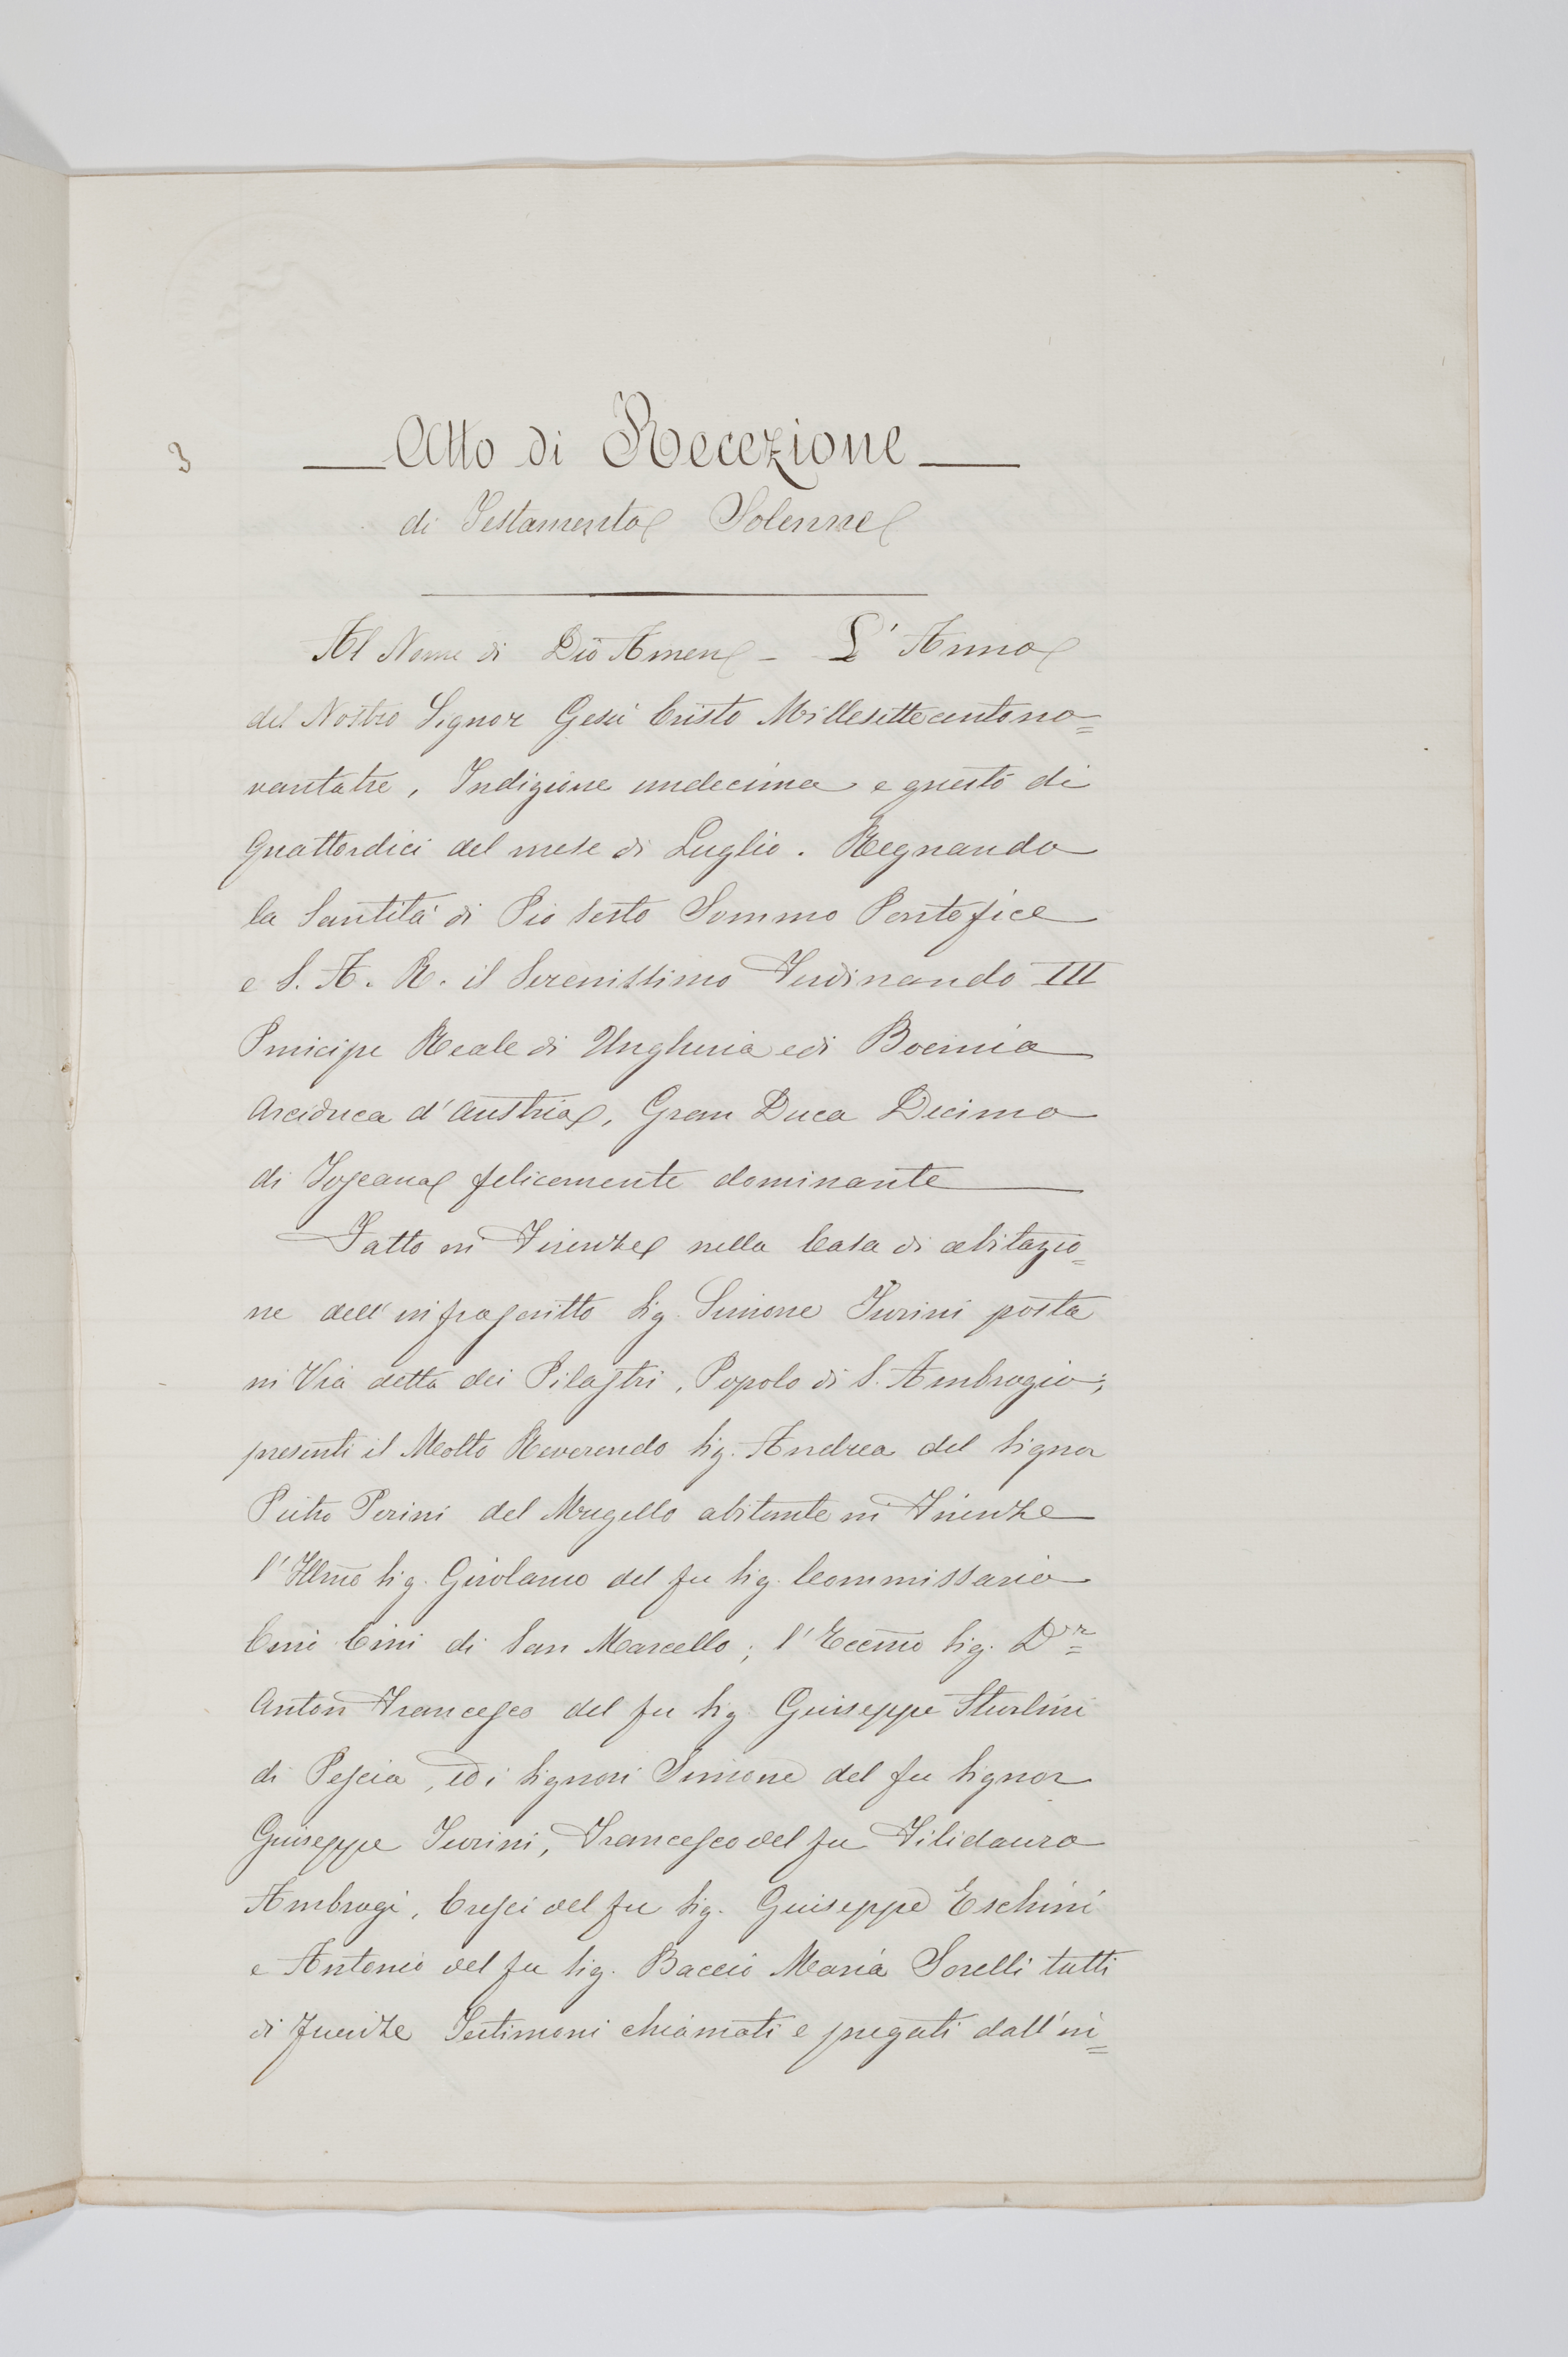 3
Atto di Recezione
di Testamento Solenne
Al Nome di Dio Amen - L' Anno
del Nostro Signor Gesù Cristo Millesettecentono=
vantatre, Indizione undecima e questo dì
Quattordici del mese di Luglio. Regnando
la Santità di Pio Sesto Sommo Pontefice
e S. A. R. il Serenissimo Ferdinando III
Principe Reale di Ungheria e di Boemia
Arciduca d'Austria, Gran Duca Decimo
di Toscana felicemente dominante
Fatto in Firenze nella Casa di abitazio=
ne dell'infrascritto Sig. Simone Turini posta
in Via detta dei Pilastri, Popolo di S. Ambrogio;
presenti il Molto Reverendo Sig. Andrea del Signor
Pietro Perini del Mugello abitante in Firenze
l'Illmo Sig. Girolamo del fu Sig. Commissario
Cini di San Marcello; l'Eccmo Sig. Dr=
Anton Francesco del fu Sig. Giuseppe Sturlini
di Pescia, ed i Signori Simone del fu Signor
Giuseppe Turini, Francesco del fu Filidauro
Ambrogi, Cresci del fu Sig. Giuseppe Eschini
e Antonio del fu Sig. Baccio Maria Sorelli tutti
di Firenze Testimoni chiamati e pregati dall'in=